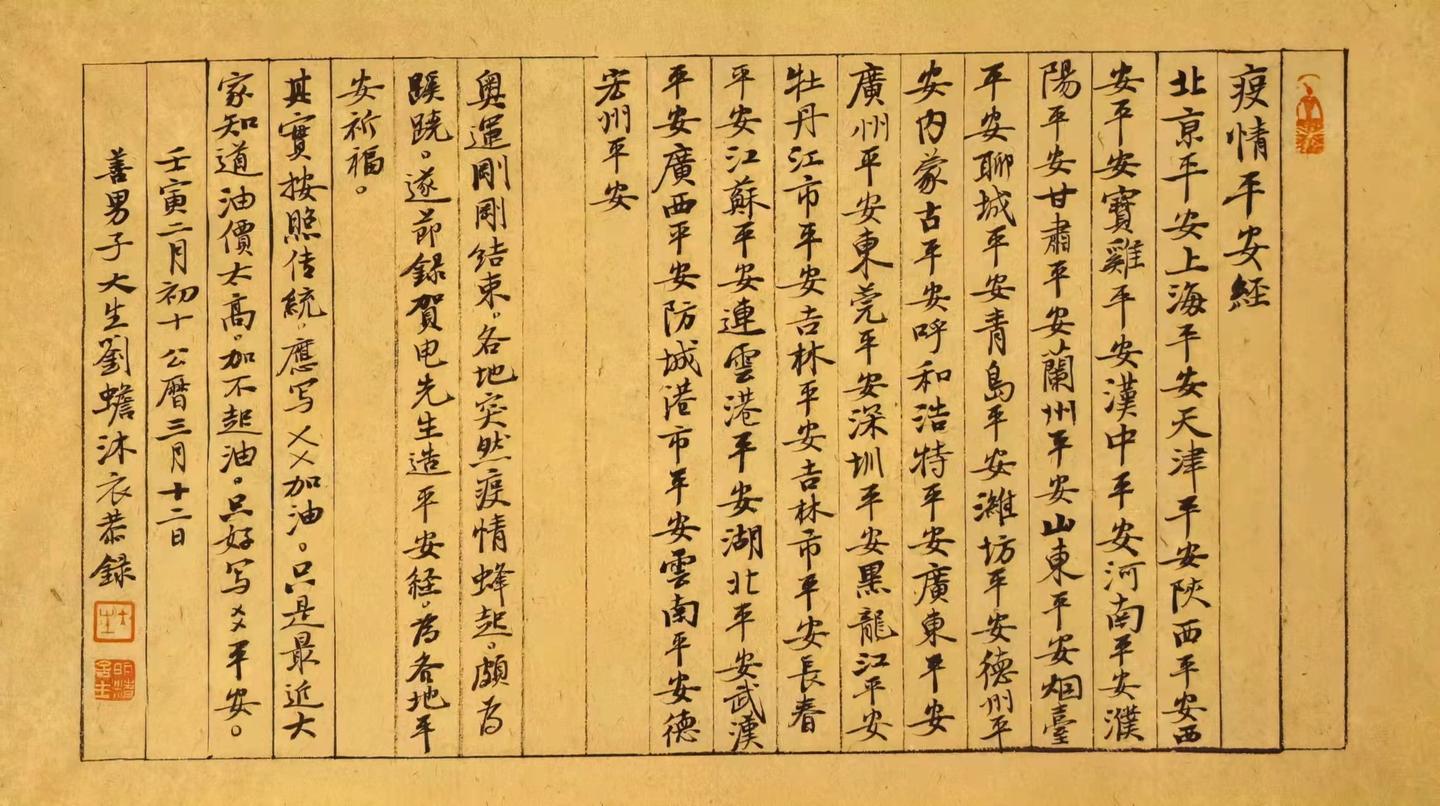 疫情平安經
北京平安上海平安天津平安陝西平安西
安平安寶雞平安漢中平安河南平安濮
陽平安甘肅平安蘭州平安山東平安烟臺
平安聊城平安青島平安濰坊平安德州平
安内蒙古平安呼和浩特平安廣東平安
廣州平安東莞平安深圳平安黑龍江平安
牡丹江市平安吉林平安吉林市平安長春
平安江蘇平安連雲港平安湖北平安武漢
平安廣西平安防城港市平安雲南平安德
宏州平安
奥運剛剛结束。各地突然疫情蜂起。頗为
蹊跷。遂節録賀电先生造平安経。为各地平
安祈福。
其實按照传統。應写××加油。只是最近大
家知道油價太高。加不起油。只好写××平安。
壬寅二月初十公曆三月十二日
善男子大生劉蟾沐衣恭録